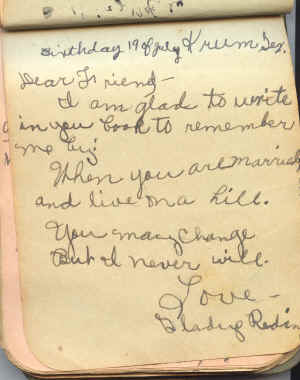 Birthday 19 of July Krum Tex.
Dear Friend-
I am glad to write
in you book to remember
me by:
When you are married
and live on a hill.
You may change
But I never will.
Love-
Gladys